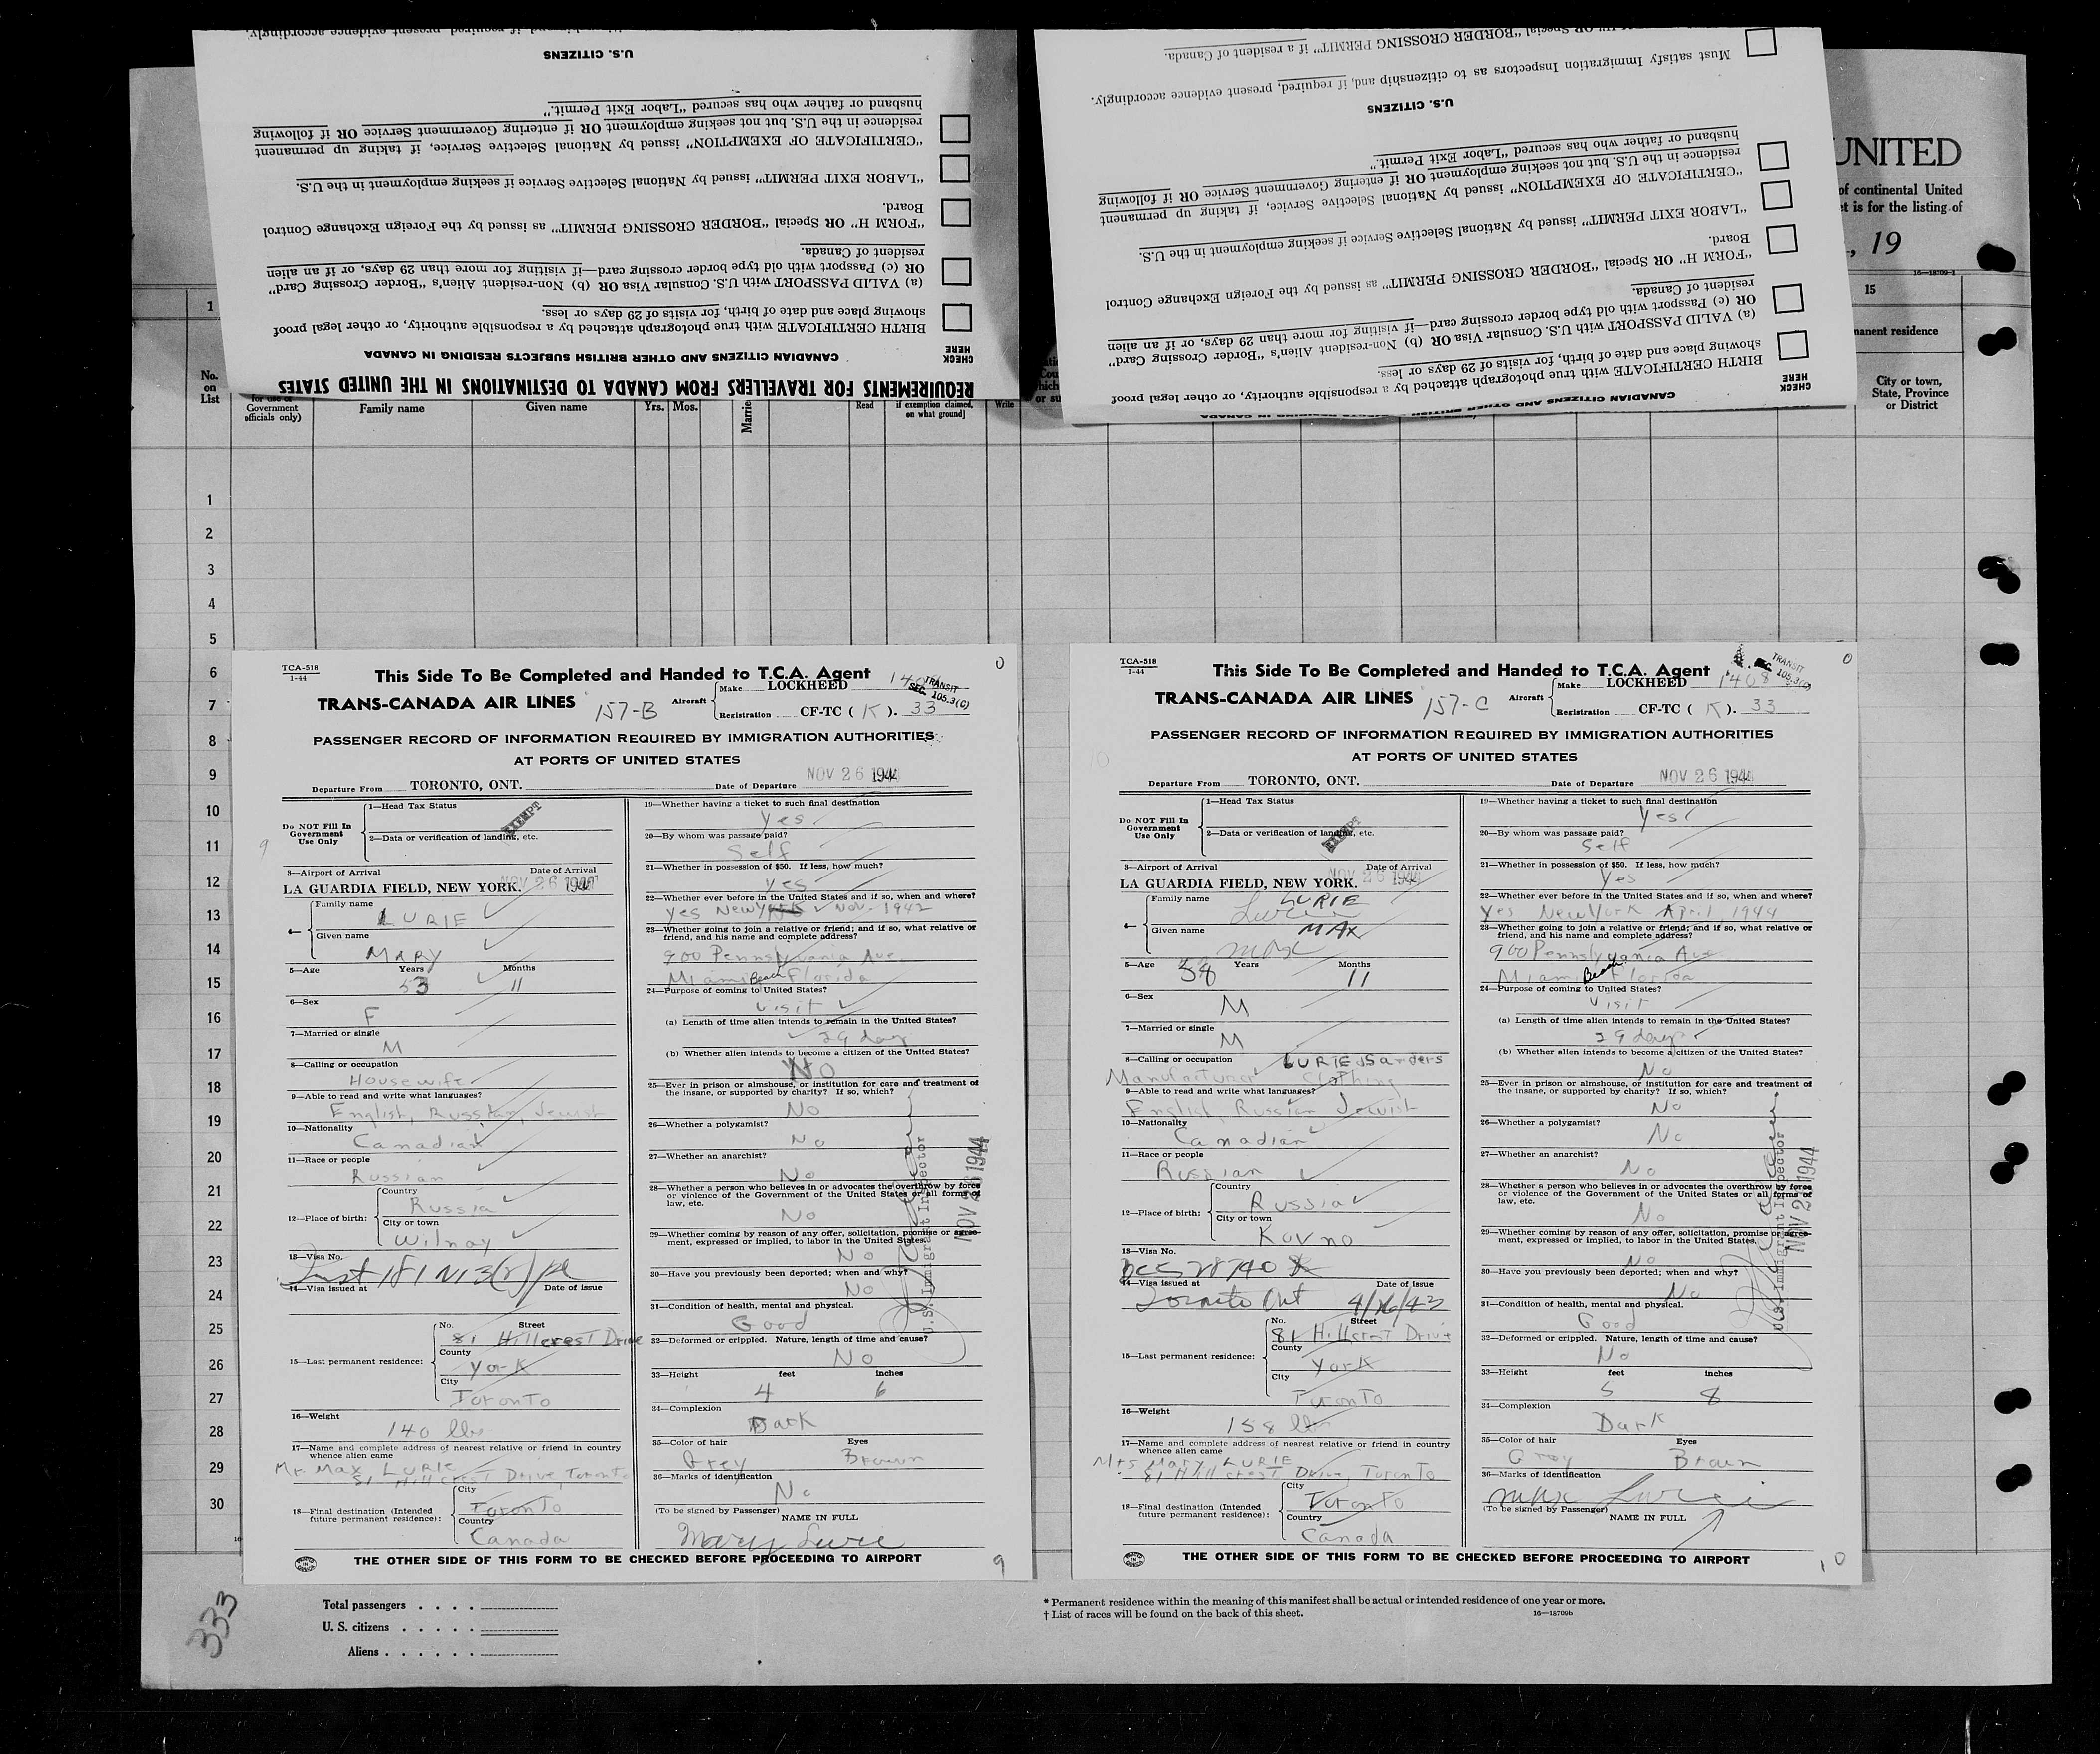 and, if required, present evidence accordingly.
U.S. CITIZENS
husband or father who has secured "Labor Exit Permit."
residence in the U.S. but not seeking employment OR if entering Government Service OR if following
"CERTIFICATE OF EXEMPTION" issued by National Selective Service, if taking up permanent
"LABOR EXIT PERMIT" issued by National Selective Service if seeking employment in the U.S.
Board.
"FORM H" OR Special "BORDER CROSSING PERMIT" as issued by the Foreign Exchange Control
resident of Canada.
OR (c) Passport with old type border crossing card—if visiting for more than 29 days, or if an alien
(a) VALID PASSPORT with U.S. Consular Visa OR (b) Non-resident Alien's "Border Crossing Card"
showing place and date of birth, for visits of 29 days or less.
BIRTH CERTIFICATE with true photograph attached by a responsible authority, or other legal proof
CHECK HERE
CANADIAN CITIZENS AND OTHER BRITISH SUBJECTS RESIDING IN CANADA
REQUIREMENTS FOR TRAVELLERS FROM CANADA TO DESTINATIONS IN THE UNITED STATES
OR Special "BORDER CROSSING PERMIT" if a resident of Canada.
Must satisfy Immigration Inspectors as to citizenship and, if required, present evidence accordingly.
U.S. CITIZENS
husband or father who has secured "Labor Exit Permit."
residence in the U.S. but not seeking employment OR if entering Government Service OR if following
"CERTIFICATE OF EXEMPTION" issued by National Selective Service, if taking up permanent
"LABOR EXIT PERMIT" issued by National Selective Service if seeking employment in the U.S.
Board.
"FORM H" OR Special "BORDER CROSSING PERMIT" as issued by the Foreign Exchange Control
resident of Canada.
OR (c) Passport with old type border crossing card—if visiting for more than 29 days, or if an alien
(a) VALID PASSPORT with U.S. Consular Visa OR (b) Non-resident Alien's "Border Crossing Card"
showing place and date of birth, for visits of 29 days or less.
BIRTH CERTIFICATE with true photograph attached by a responsible authority, or other legal proof
CHECK HERE
CANADIAN CITIZENS AND OTHER BRITISH
UNITED
of continental United
is for the listing of
, 19
16—18709-1
1
15
residence
No. on List
Government officials only)
Family name
Given name
Yrs.
Mos.
Read
if exemption claimed, on what ground]
Write
City or town, State, Province or District
1
2
3
4
5
6
7
8
9
10
11
12
13
14
15
16
17
18
19
20
21
22
23
24
25
26
27
28
29
30
TCA-518
1-44
This Side To Be Completed and Handed to T.C.A. Agent
0
TRANS-CANADA AIR LINES 157-B
Aircraft Make LOCKHEED
TRANSIT SEC. 105.3(C)
Registration CF-TC ( K ). 33
PASSENGER RECORD OF INFORMATION REQUIRED BY IMMIGRATION AUTHORITIES
AT PORTS OF UNITED STATES
Departure From TORONTO, ONT. Date of Departure NOV 26 1944
Do NOT Fill In Government Use Only
1—Head Tax Status
EXEMPT
2—Data or verification of landing, etc.
9
3—Airport of Arrival Date of Arrival
LA GUARDIA FIELD, NEW YORK. NOV 26 1944
4— Family name LURIE
Given name MARY
5—Age Years 53 Months 11
6—Sex F
7—Married or single M
8—Calling or occupation Housewife
9—Able to read and write what languages?
English, Russian, Jewish
10—Nationality Canadian
11—Race or people Russian
12—Place of birth: Country Russia
City or town Wilnay
13—Visa No.
14—Visa issued at Date of issue
15—Last permanent residence: No. Street 81 Hillcrest Drive
County York
City Toronto
16—Weight 140 lbs
17—Name and complete address of nearest relative or friend in country whence alien came
Mr. Max LURIE
81 Hillcrest Drive, Toronto
18—Final destination (Intended future permanent residence): City Toronto
Country Canada
19—Whether having a ticket to such final destination
Yes
20—By whom was passage paid?
Self
21—Whether in possession of $50. If less, how much?
Yes
22—Whether ever before in the United States and if so, when and where?
Yes New York Nov. 1942
23—Whether going to join a relative or friend; and if so, what relative or friend, and his name and complete address?
900 Pennsylvania Ave
Miami Beach Florida
24—Purpose of coming to United States?
Visit
(a) Length of time alien intends to remain in the United States?
29 days
(b) Whether alien intends to become a citizen of the United States?
No
25—Ever in prison or almshouse, or institution for care and treatment of the insane, or supported by charity? If so, which?
No
26—Whether a polygamist?
No
27—Whether an anarchist?
No
28—Whether a person who believes in or advocates the overthrow by force or violence of the Government of the United States or all forms of law, etc.
No
29—Whether coming by reason of any offer, solicitation, promise or agreement, expressed or implied, to labor in the United States.
No
30—Have you previously been deported; when and why?
No
31—Condition of health, mental and physical.
Good
32—Deformed or crippled. Nature, length of time and cause?
No
33—Height feet 4 inches 6
34—Complexion Dark
35—Color of hair Grey Eyes Brown
36—Marks of identification No
(To be signed by Passenger) NAME IN FULL
Mary Lurie
U.S. Immigrant Inspector
THE OTHER SIDE OF THIS FORM TO BE CHECKED BEFORE PROCEEDING TO AIRPORT
9
TCA-518
1-44
This Side To Be Completed and Handed to T.C.A. Agent
0
TRANS-CANADA AIR LINES 157-C
Aircraft Make LOCKHEED 1408
TRANSIT SEC. 105.3(C)
Registration CF-TC ( K ). 33
PASSENGER RECORD OF INFORMATION REQUIRED BY IMMIGRATION AUTHORITIES
AT PORTS OF UNITED STATES
10
Departure From TORONTO, ONT. Date of Departure NOV 26 1944
Do NOT Fill In Government Use Only
1—Head Tax Status
EXEMPT
2—Data or verification of landing, etc.
3—Airport of Arrival Date of Arrival
LA GUARDIA FIELD, NEW YORK. NOV 26 1944
4— Family name LURIE
Lurie
Given name MAX
Max
5—Age 58 Years Months 11
6—Sex M
7—Married or single M
8—Calling or occupation LURIE & Sanders
Manufacturer Clothing
9—Able to read and write what languages?
English, Russian Jewish
10—Nationality Canadian
11—Race or people Russian
12—Place of birth: Country Russia
City or town Kovno
13—Visa No.
14—Visa issued at Toronto Ont Date of issue
15—Last permanent residence: No. Street 81 Hillcrest Drive
County York
City Toronto
16—Weight 158 lbs
17—Name and complete address of nearest relative or friend in country whence alien came
Mrs Mary LURIE
81 Hillcrest Drive, Toronto
18—Final destination (Intended future permanent residence): City Toronto
Country Canada
19—Whether having a ticket to such final destination
Yes
20—By whom was passage paid?
Self
21—Whether in possession of $50. If less, how much?
Yes
22—Whether ever before in the United States and if so, when and where?
Yes New York April, 1944
23—Whether going to join a relative or friend; and if so, what relative or friend, and his name and complete address?
900 Pennsylvania Ave
Miami Beach Florida
24—Purpose of coming to United States?
Visit
(a) Length of time alien intends to remain in the United States?
29 days
(b) Whether alien intends to become a citizen of the United States?
No
25—Ever in prison or almshouse, or institution for care and treatment of the insane, or supported by charity? If so, which?
No
26—Whether a polygamist?
No
27—Whether an anarchist?
No
28—Whether a person who believes in or advocates the overthrow by force or violence of the Government of the United States or all forms of law, etc.
No
29—Whether coming by reason of any offer, solicitation, promise or agreement, expressed or implied, to labor in the United States.
No
30—Have you previously been deported; when and why?
No
31—Condition of health, mental and physical.
Good
32—Deformed or crippled. Nature, length of time and cause?
No
33—Height feet 5 inches 8
34—Complexion Dark
35—Color of hair Grey Eyes Brown
36—Marks of identification
Max Lurie
(To be signed by Passenger) NAME IN FULL
U.S. Immigrant Inspector
THE OTHER SIDE OF THIS FORM TO BE CHECKED BEFORE PROCEEDING TO AIRPORT
10
333
Total passengers
U. S. citizens
Aliens
* Permanent residence within the meaning of this manifest shall be actual or intended residence of one year or more.
† List of races will be found on the back of this sheet. 16—18709b